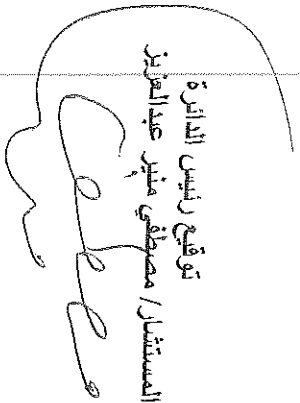 توقيع رئيس الدائرة
المستشار/ مصطفي منير عبدالعزيز